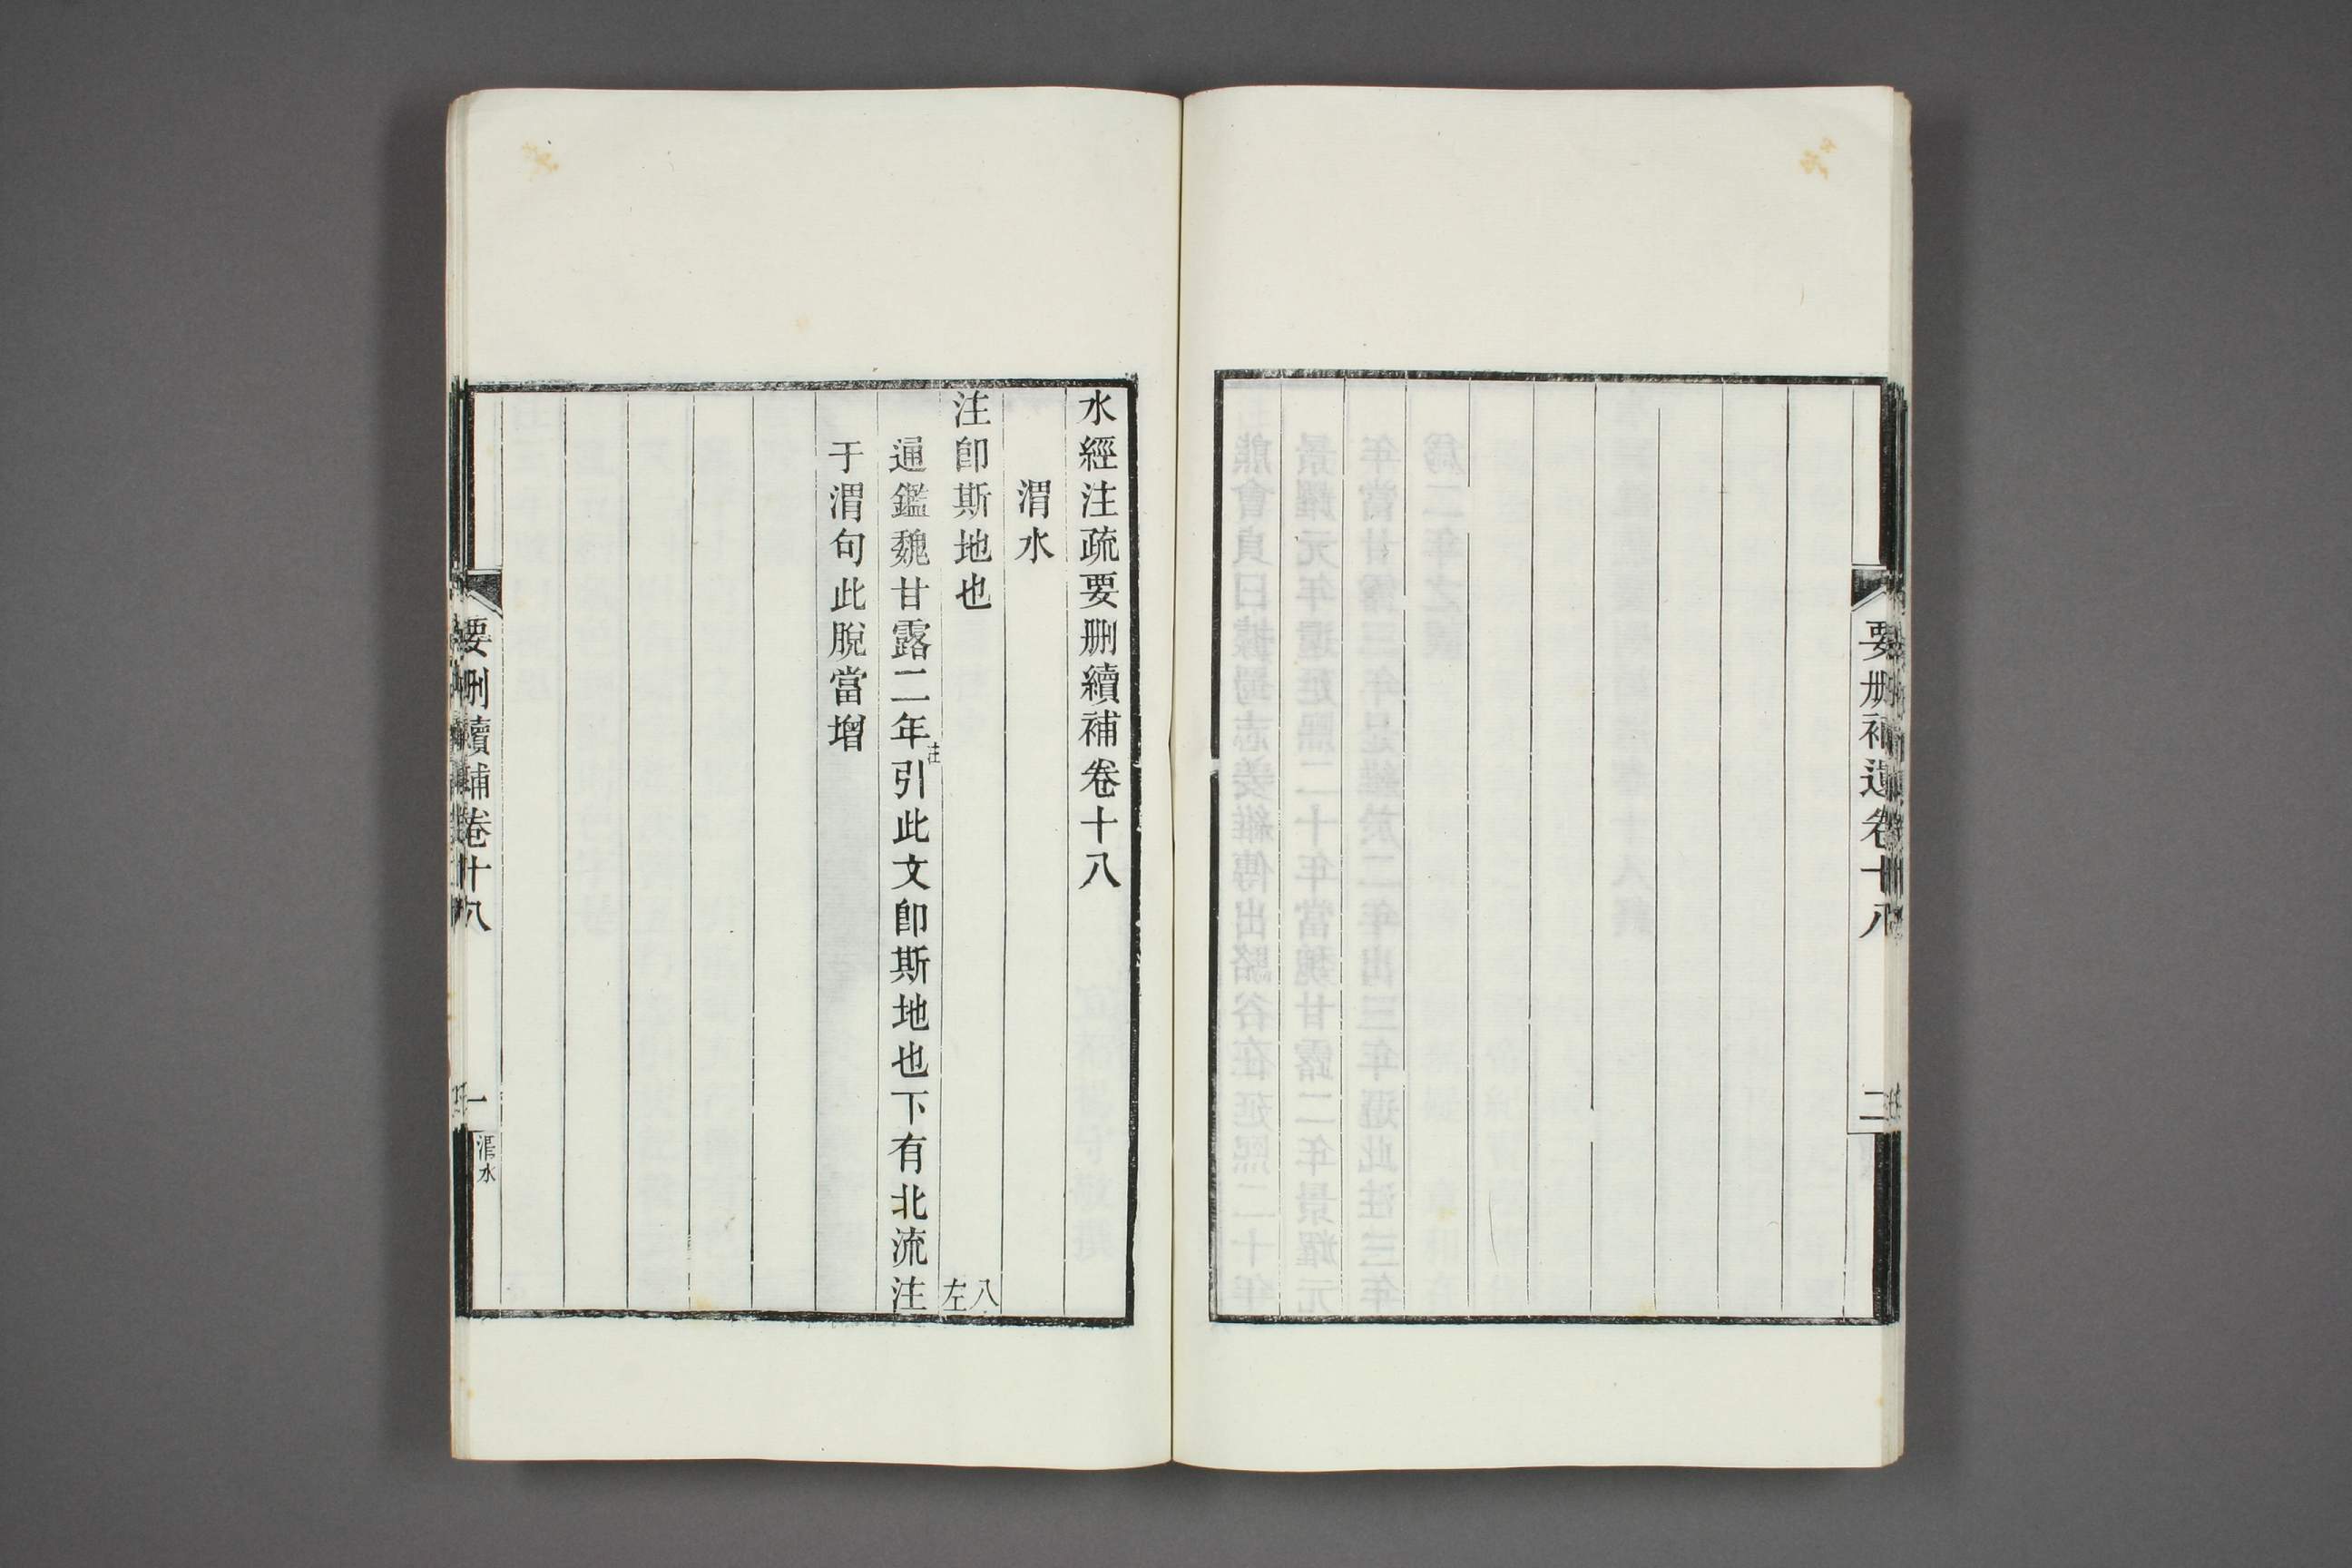 要删補遺卷十八
二
水經注疏要删續補卷十八
渭水
注卽斯地也
八左
通鑑魏甘露二年注引此文卽斯地也下有北流注
于渭句此脫當增
要删續補卷十八
一
渭水